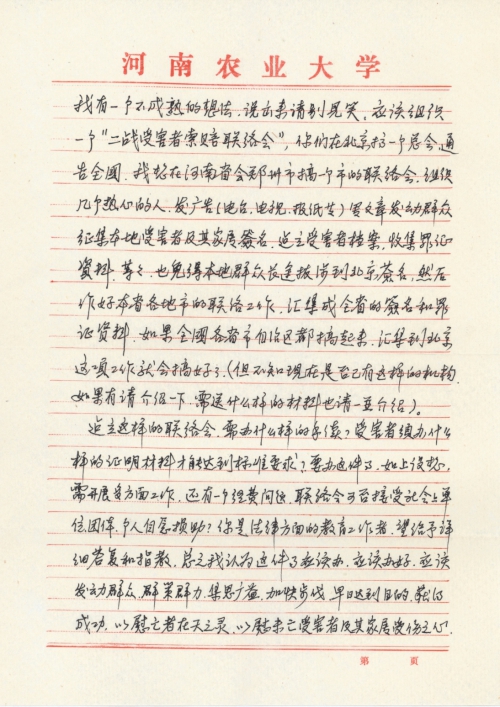 河南农业大学
我有一个不成熟的想法，说出来请别见笑，应该组织
一个“二战受害者索赔联络会”，你们在北京搞一个总会通
告全国，我好在河南省会郑州市搞一个市的联络会，组织
几个热心的人，发广告（电台，电视，报纸等）写文章发动群众
征集本地受害者及其家属签名，造立受害者档案，收集罪证
资料，等々，也免得本地群众长途拔涉到北京签名，然后
作好本省各地市的联络工作，汇集成全省的签名和罪
证资料，如果全国各省市自治区都搞起来，汇集到北京
这项工作就会搞好了，（但不知现在是否已有这样的机构，
如果有请介绍一下，需送什么样的材料也请一并介绍）。
造立这样的联络会，需办什么样的手续？受害者须办什么
样的证明材料才能达到标准要求？要办这件事，如上设想，
需开展多方面工作，还有一个经费问题，联络会可否接受社会上单
位、团体、个人自愿损助？你是法律方面的教育工作者，望给予详
细答复和指教，总之我认为这件事应该办，应该办好，应该
发动群众，群策群力，集思广益，加快步伐，早日达到目的，获得
成功，以慰亡者在天之灵，以慰未亡受害者及其家属受伤之心，
第　页